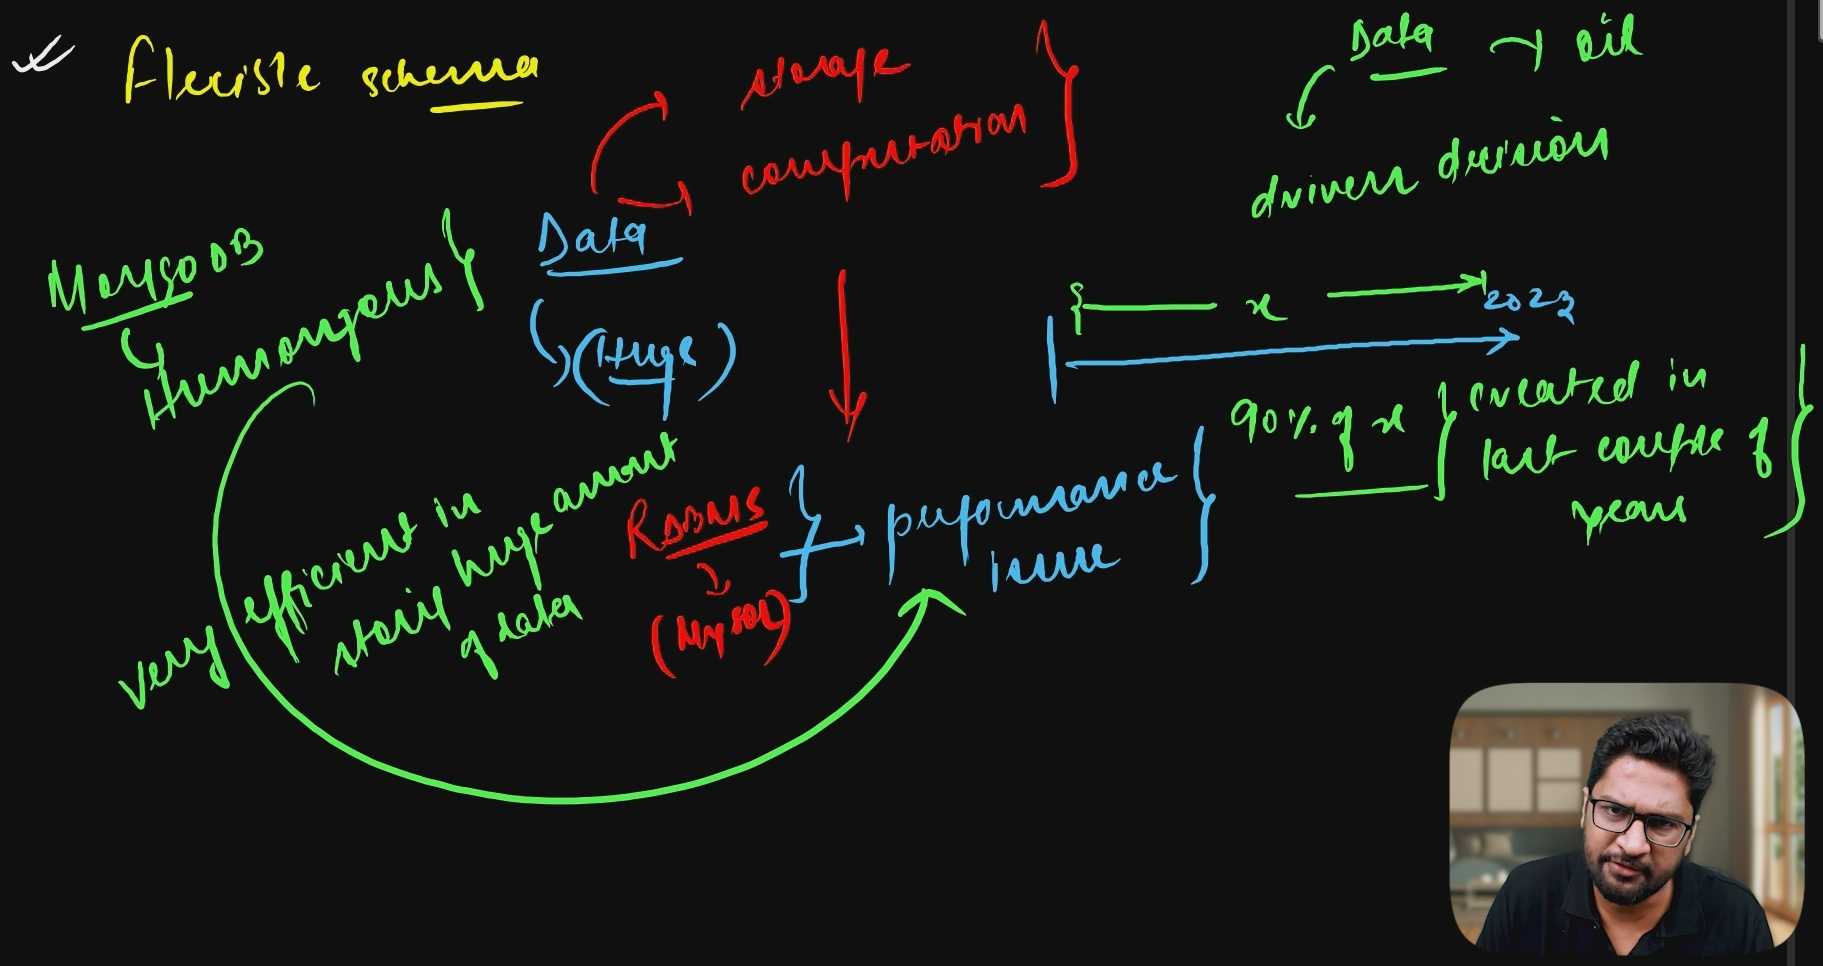 Flexible schema
storage
computation
Data → oil
driven decision
MongoDB
Humongous
Data
(Huge)
x
2023
90% of x
created in
last couple of
years
very efficient in
storing huge amount
of data
RDBMS
(MySQL)
performance
issue